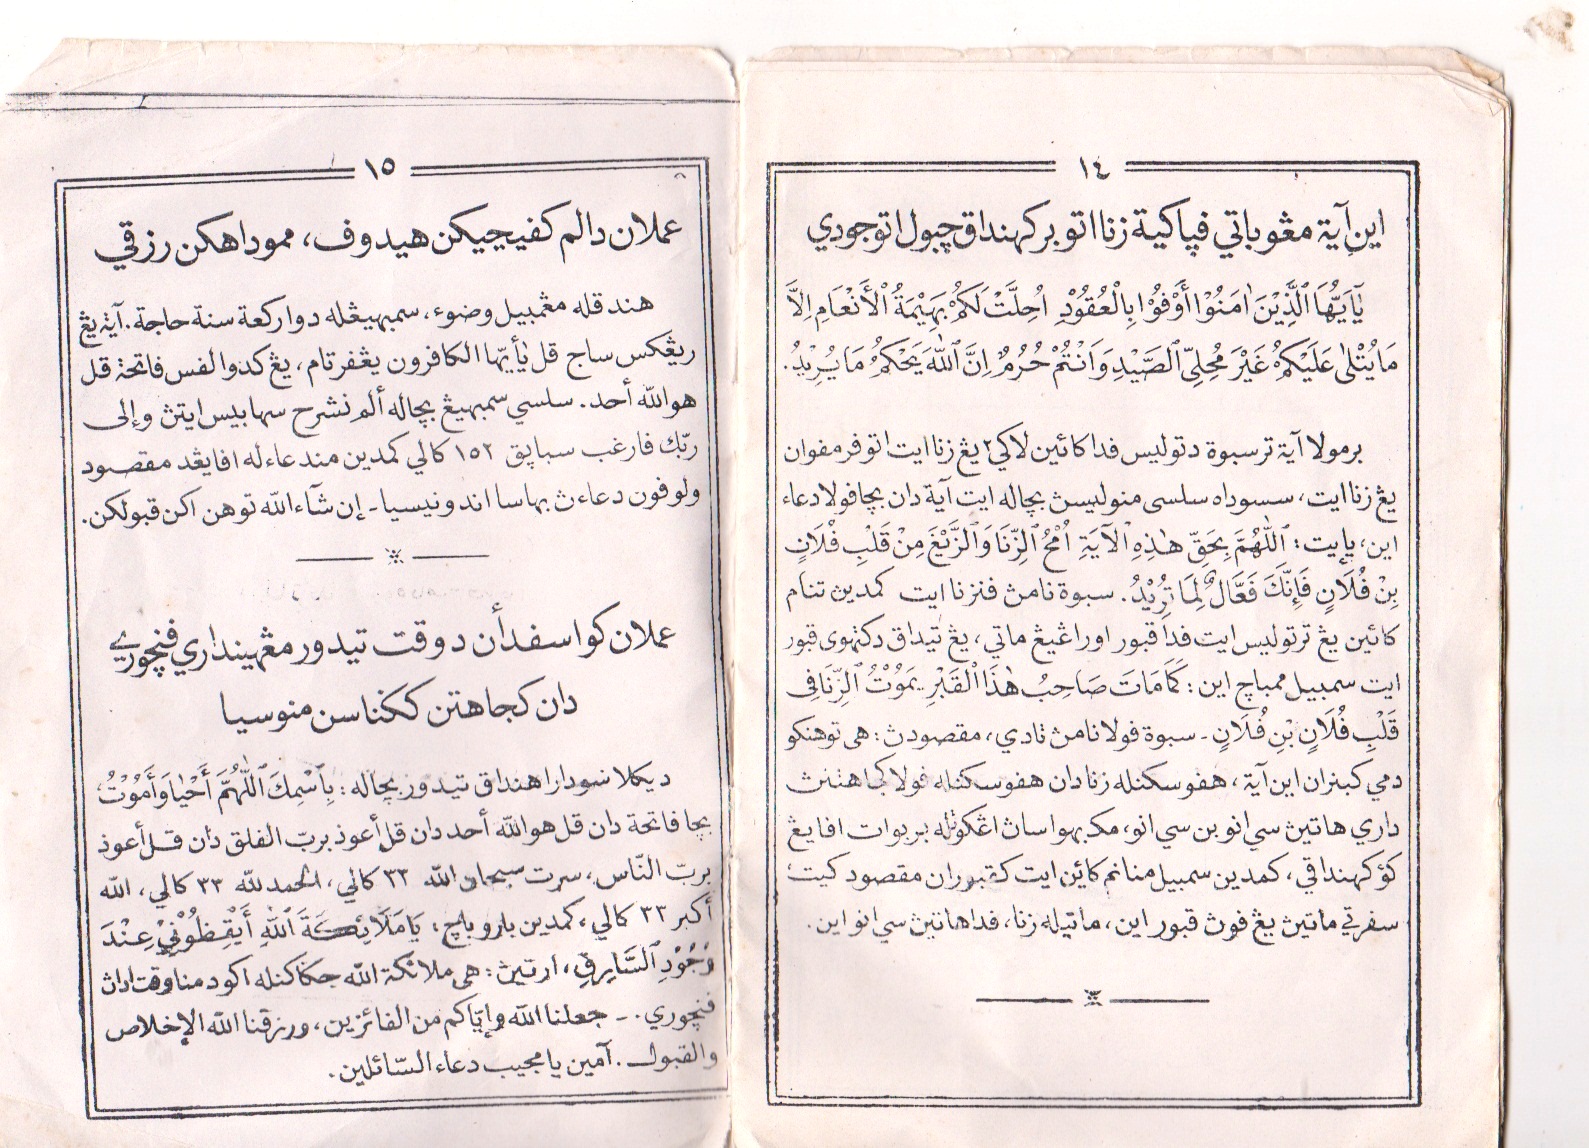 ١٤
اين آية مڠوباتي ڤپاكية زنا اتو بركهنداق چبول اتو جودي
يٰٓاَيُّهَا ٱلَّذِيْنَ اٰمَنُوْا أَوْفُوْا بِالْعُقُوْدِ اُحِلَّتْ لَكُمْ بَهِيْمَةُ ٱلْأَنْعَامِ اِلَّا
مَا يُتْلٰى عَلَيْكُمْ غَيْرَ مُحِلِّى ٱلصَّيْدِ وَاَنْتُمْ حُرُمٌ اِنَّ ٱللّٰهَ يَحْكُمُ مَا يُرِيْدُ.
برمولا آية ترسبوة دتوليس ڤدا كائين لاكي٢ يڠ زنا ايت اتو ڤرمڤوان
يڠ زنا ايت، سسوداه سلسى منوليسڽ بچاله ايت آية دان بچا ڤولا دعاء
اين، يإيت: ٱللّٰهُمَّ بِحَقِّ هٰذِهِ ٱلْآيَةِ اُمْحُ ٱلزِّنَا وَٱلزَّيْغَ مِنْ قَلْبِ فُلَانٍ
بِنْ فُلَانٍ فَإِنَّكَ فَعَّالٌ لِمَا تُرِيْدُ. سبوة نامڽ ڤنزنا ايت كمدين تنام
كائين يڠ ترتوليس ايت ڤدا قبور اوراڠيڠ ماتي، يڠ تيداق دكتهوى قبور
ايت سمبيل ممباچ اين: كَمَا مَاتَ صَاحِبُ هٰذَا ٱلْقَبْرِ يَمُوْتُ ٱلزِّنَا فِى
قَلْبِ فُلَانٍ بْنِ فُلَانٍ ـ سبوة ڤولا نامڽ تادي، مقصودڽ: هى توهنكو
دمي كبنران اين آية، هڤوسكنله زنا دان هڤوسكنله ڤولا كجاهتنڽ
داري هاتيڽ سي انو بن سي انو، مك بهواساڽ اڠكوݢله بربوات اڤا يڠ
كؤ كهنداقي، كمدين سمبيل منانم كائين ايت كقبوران مقصود كيت؛
سڤرتي ماتيڽ يڠ ڤوڽ قبور اين، ماتيله زنا، ڤدا هاتيڽ سي انو اين.
١٥
عملان دالم كڤيچيكن هيدوڤ، مموداهكن رزقي
هندقله مڠمبيل وضوء، سمبهيڠله دوا ركعة سنة حاجة. آية يڠ
ريڠكس ساج قل يٰأيّها الكافرون يڠڤرتام، يڠ كدوا لڤس فاتحة قل
هوالله أحد. سلسي سمبهيڠ بچاله ألم نشرح سهابيس ايتڽ وإلى
ربّك فارغب سباپق ١٥٢ كالي كمدين مندعاءله اڤا يڠد مقصود
ولوڤون دعاءڽ بهاسا اندونيسيا ـ إن شآء الله توهن اكن قبولكن.
عملان كواسڤدأن دوقت تيدور مڠهينداري ڤنچوري
دان كجاهتن ككناسن منوسيا
ديكلا سودارا هنداق تيدور بچاله: بِٱسْمِكَ ٱللّٰهُمَّ أَحْيَا وَأَمُوْتُ
بچا فاتحة دان قل هوالله أحد دان قل أعوذ بربّ الفلق دان قل أعوذ
بربّ النّاس، سرت سبحان الله ٣٣ كالي، الحمد لله ٣٣ كالي، الله
أكبر ٣٣ كالي، كمدين بارو باچ: يَا مَلَائِكَةَ ٱللّٰهِ أَيْقِظُوْنِيْ عِنْدَ
وُجُوْدِ ٱلسَّارِقِ، ارتيڽ: هى ملائكة الله جݢاكنله اكو دمنا وقت اداڽ
ڤنچوري. ـ جعلنا الله وإيّاكم من الفائزين، ورزقنا الله الإخلاص
والقبول. آمين يا مجيب دعاء السّائلين.